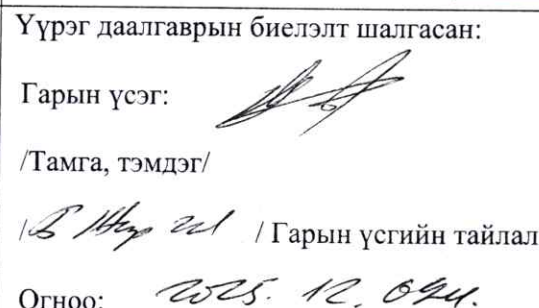 Үүрэг даалгаврын биелэлт шалгасан:
Гарын үсэг:
/Тамга, тэмдэг/
/ / Гарын үсгийн тайлал
Огноо: 2025. 12.